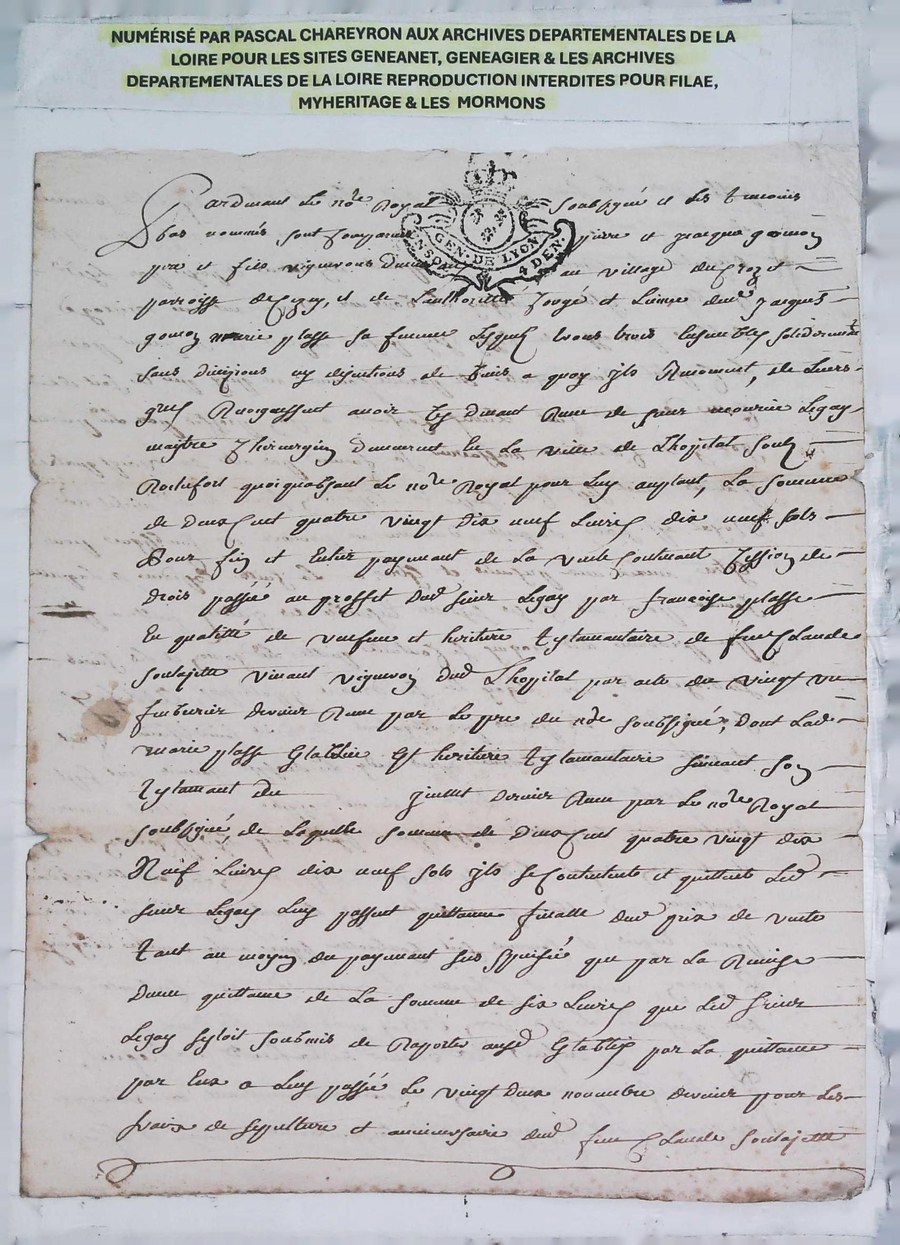 NUMÉRISÉ PAR PASCAL CHAREYRON AUX ARCHIVES DEPARTEMENTALES DE LA
LOIRE POUR LES SITES GENEANET, GENEAGIER & LES ARCHIVES
DEPARTEMENTALES DE LA LOIRE REPRODUCTION INTERDITES POUR FILAE,
MYHERITAGE & LES MORMONS
Pardevant le nore Royal soubsigné et les temoins
bas nommés sont pierre et jacque
pere et fils vignerons au village du
parroisse de et de Lauthorité dud jacques
marie plasse sa femme lesquels tous trois ensembles solidairement
sans divisions ny de a quoy ils Renoncent, de leurs
grés avoir de sieur Legay
maistre demeurant en La ville de Lhopital soubs
Rochefort le nore Royal pour Luy La somme
de deux cent quatre vingt dix neuf Livres dix neuf sols
Pour fin et Entier payement de La vente Contenant Cession de
drois passée au proffit dud sieur Legay par francoise plasse
En qualitté de et heritiere testamentaire de feu Claude
Soulajette vivant vigneron dud Lhopital par acte du vingt un
dernier par le pre du nore soubsigné, dont Lad
marie plasse Est heritiere testamentaire suivant son
testament du juillet dernier par Le nore Royal
soubsigné, de Laquelle somme de deux cent quatre vingt dix
Neuf Livres dix neuf sols ils se Contentent et quittent Led
sieur Legay Luy passent quittance finalle dud prix de vente
tant au moyen du payement sus que par La Remise
dune quittance de La somme de six Livres que Led sieur
Legay sestoit soubmis de Raporter par La quittance
par Eux a Luy passée Le vingt deux novembre dernier pour Les
fraix de sepulture et anniversaire dud feu Claude Soulajette
GEN. DE LYON
4 DEN.